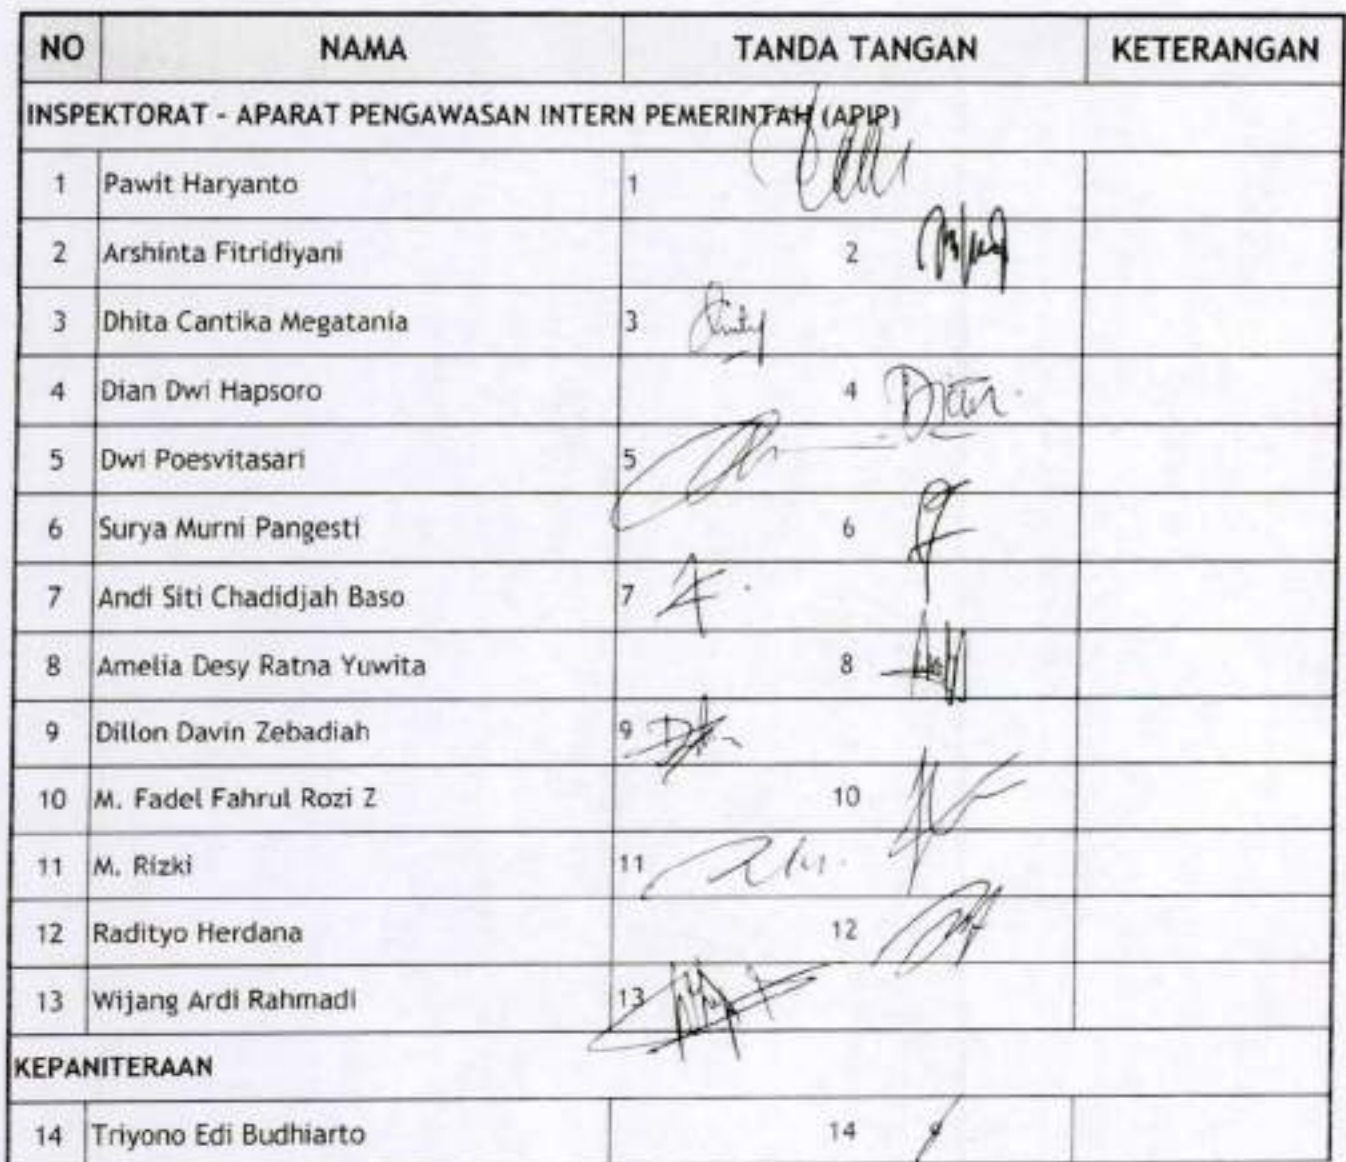 NO NAMA TANDA TANGAN KETERANGAN
INSPEKTORAT - APARAT PENGAWASAN INTERN PEMERINTAH (APIP)
1 Pawit Haryanto 1
2 Arshinta Fitridiyani 2
3 Dhita Cantika Megatania 3
4 Dian Dwi Hapsoro 4 Dian
5 Dwi Poesvitasari 5
6 Surya Murni Pangesti 6
7 Andi Siti Chadidjah Baso 7
8 Amelia Desy Ratna Yuwita 8
9 Dillon Davin Zebadiah 9
10 M. Fadel Fahrul Rozi Z 10
11 M. Rizki 11
12 Radityo Herdana 12
13 Wijang Ardi Rahmadi 13
KEPANITERAAN
14 Triyono Edi Budhiarto 14